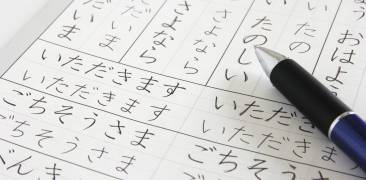 おはよう
たのしい
たのしい
さよなら
さよなら
だいま
だいま
いただきます
いただきます
ごちそうさま
ごちそうさま
べんき
いただき
いただきま
ごちそう
ごちそ